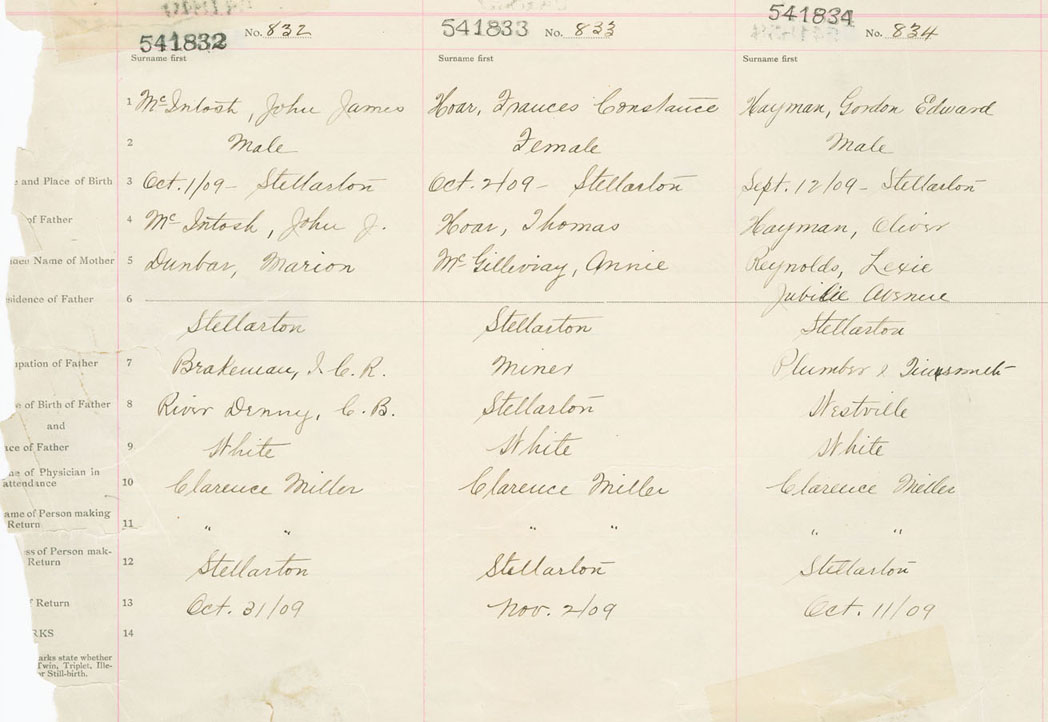 541832 No. 832
541833 No. 833
541834 No. 834
Surname first
Surname first
Surname first
1 McIntosh, John James
Hoar, Frances Constance
Hayman, Gordon Edward
2 Male
Female
Male
e and Place of Birth 3 Oct. 1/09 - Stellarton
Oct. 2/09 - Stellarton
Sept. 12/09 - Stellarton
of Father 4 McIntosh, John J.
Hoar, Thomas
Hayman, Oliver
iden Name of Mother 5 Dunbar, Marion
McGillivray, Annie
Reynolds, Lexie
sidence of Father 6
Jubilee Avenue
Stellarton
Stellarton
Stellarton
upation of Father 7 Brakeman, I. C. R.
Miner
Plumber & Tinsmith
e of Birth of Father 8 River Denny, C. B.
Stellarton
Westville
and
ace of Father 9 White
White
White
me of Physician in
attendance 10 Clarence Miller
Clarence Miller
Clarence Miller
ame of Person making
Return 11 " "
" "
" "
ss of Person mak-
Return 12 Stellarton
Stellarton
Stellarton
f Return 13 Oct. 31/09
Nov. 2/09
Oct. 11/09
RKS 14
arks state whether
Twin, Triplet, Ille-
r Still-birth.